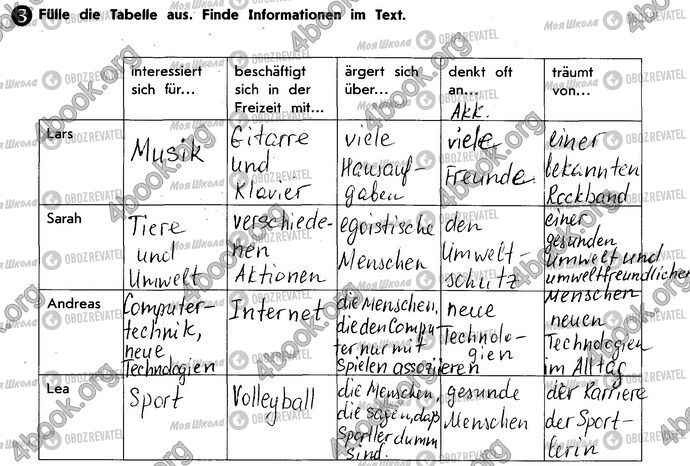 3 Fülle die Tabelle aus. Finde Informationen im Text.
interessiert sich für...
beschäftigt sich in der Freizeit mit...
ärgert sich über...
denkt oft an... Akk.
träumt von...
Lars
Musik
Gitarre und Klavier
viele Hausaufgaben
viele Freunde
einer bekannten Rockband
Sarah
Tiere und Umwelt
verschiedenen Aktionen
egoistische Menschen
den Umweltschutz
einer gesunden Umwelt und umweltfreundlichen Menschen
Andreas
Computertechnik, neue Technologien
Internet
die Menschen, die den Computer nur mit Spielen assoziieren
neue Technologien
neuen Technologien im Alltag
Lea
Sport
Volleyball
die Menschen, die sagen, daß Sportler dumm sind.
gesunde Menschen
der Karriere der Sportlerin
Моя Школа
OBOZREVATEL
4book.org